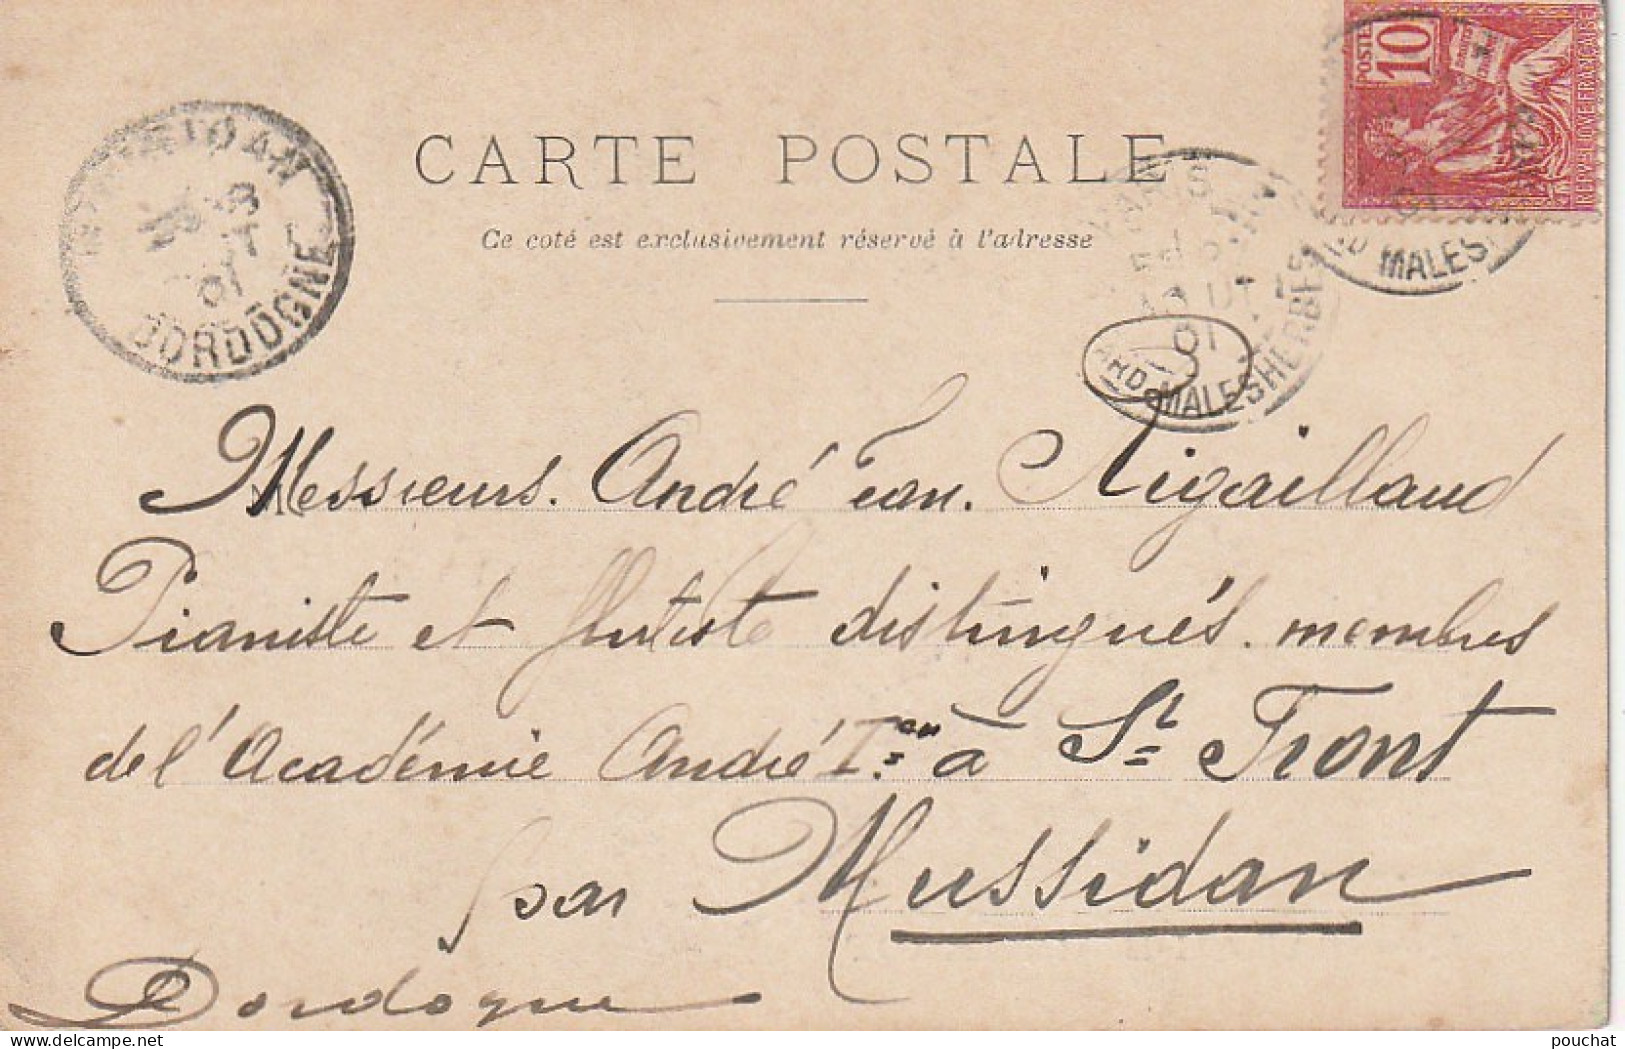 POSTES
10
REPUBLIQUE FRANÇAISE
CARTE POSTALE
Ce coté est exclusivement réservé à l'adresse
MUSSIDAN
01
DORDOGNE
PARIS
AOUT
01
BARD MALESHERBES
Messieurs. André Jean. Rigaillaud
Pianiste et flutiste distingués. membres
de l'Académie André Ier à St Front
par Mussidan
Dordogne
www.delcampe.net
pouchat